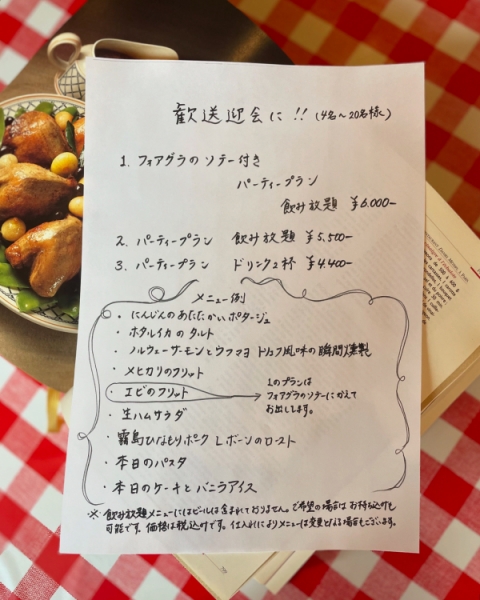 歓送迎会に!! (4名～20名様)
1. フォアグラのソテー付き
パーティープラン
飲み放題 ¥6.000-
2. パーティープラン 飲み放題 ¥5,500-
3. パーティープラン ドリンク2杯 ¥4.400-
メニュー例
・にんじんのあたたかいポタージュ
・ホタルイカのタルト
・ノルウェーサーモンとウフマヨ トリュフ風味の瞬間燻製
・メヒカリのフリット
・エビのフリット
1.のプランは
フォアグラのソテーにかえて
お出しします。
・生ハムサラダ
・霧島ひなもりポーク Lボーンのロースト
・本日のパスタ
・本日のケーキとバニラアイス
※飲み放題メニューにはビールは含まれておりません。ご希望の場合はお持ち込みも
可能です。価格は税込けです。仕入れによりメニューは変更となる場合もございます。